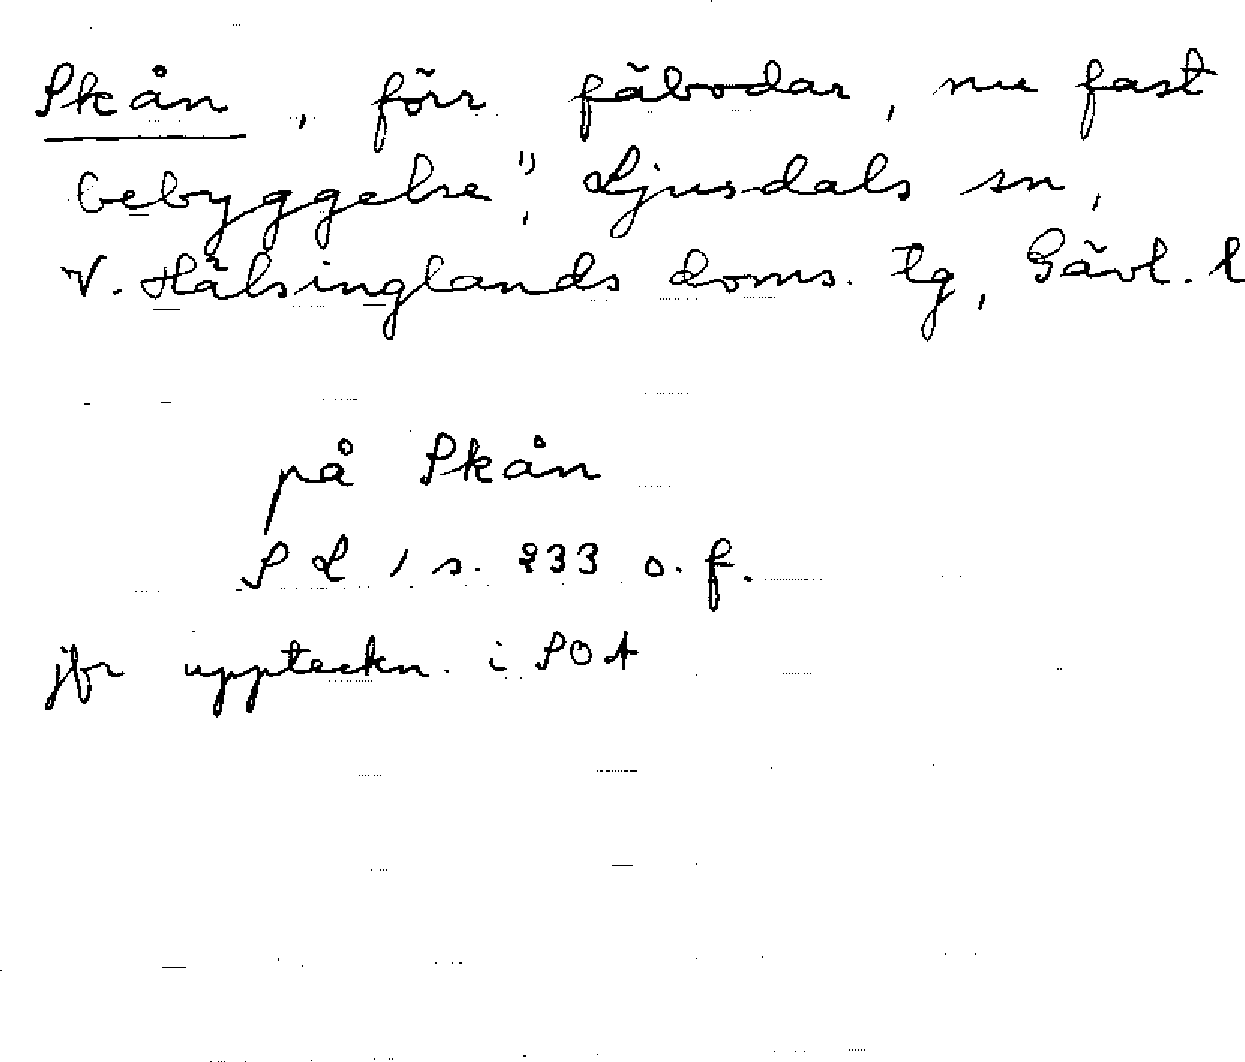 Skån, förr fäbodar, nu fast
bebyggelse", Ljusdals sn,
V. Hälsinglands doms. tg, Gävl. l
på Skån
SL 1 s. 233 o. f.
jfr uppteckn. i SOA